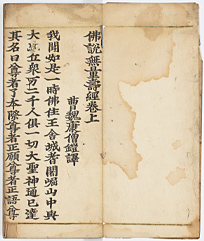 佛說無量壽經卷上
曹魏康僧鎧譯
我聞如是一時佛住王舍城耆闍崛山中與
大比丘眾万二千人俱一切大聖神通已達
其名曰尊者了本際尊者正願尊者正語尊